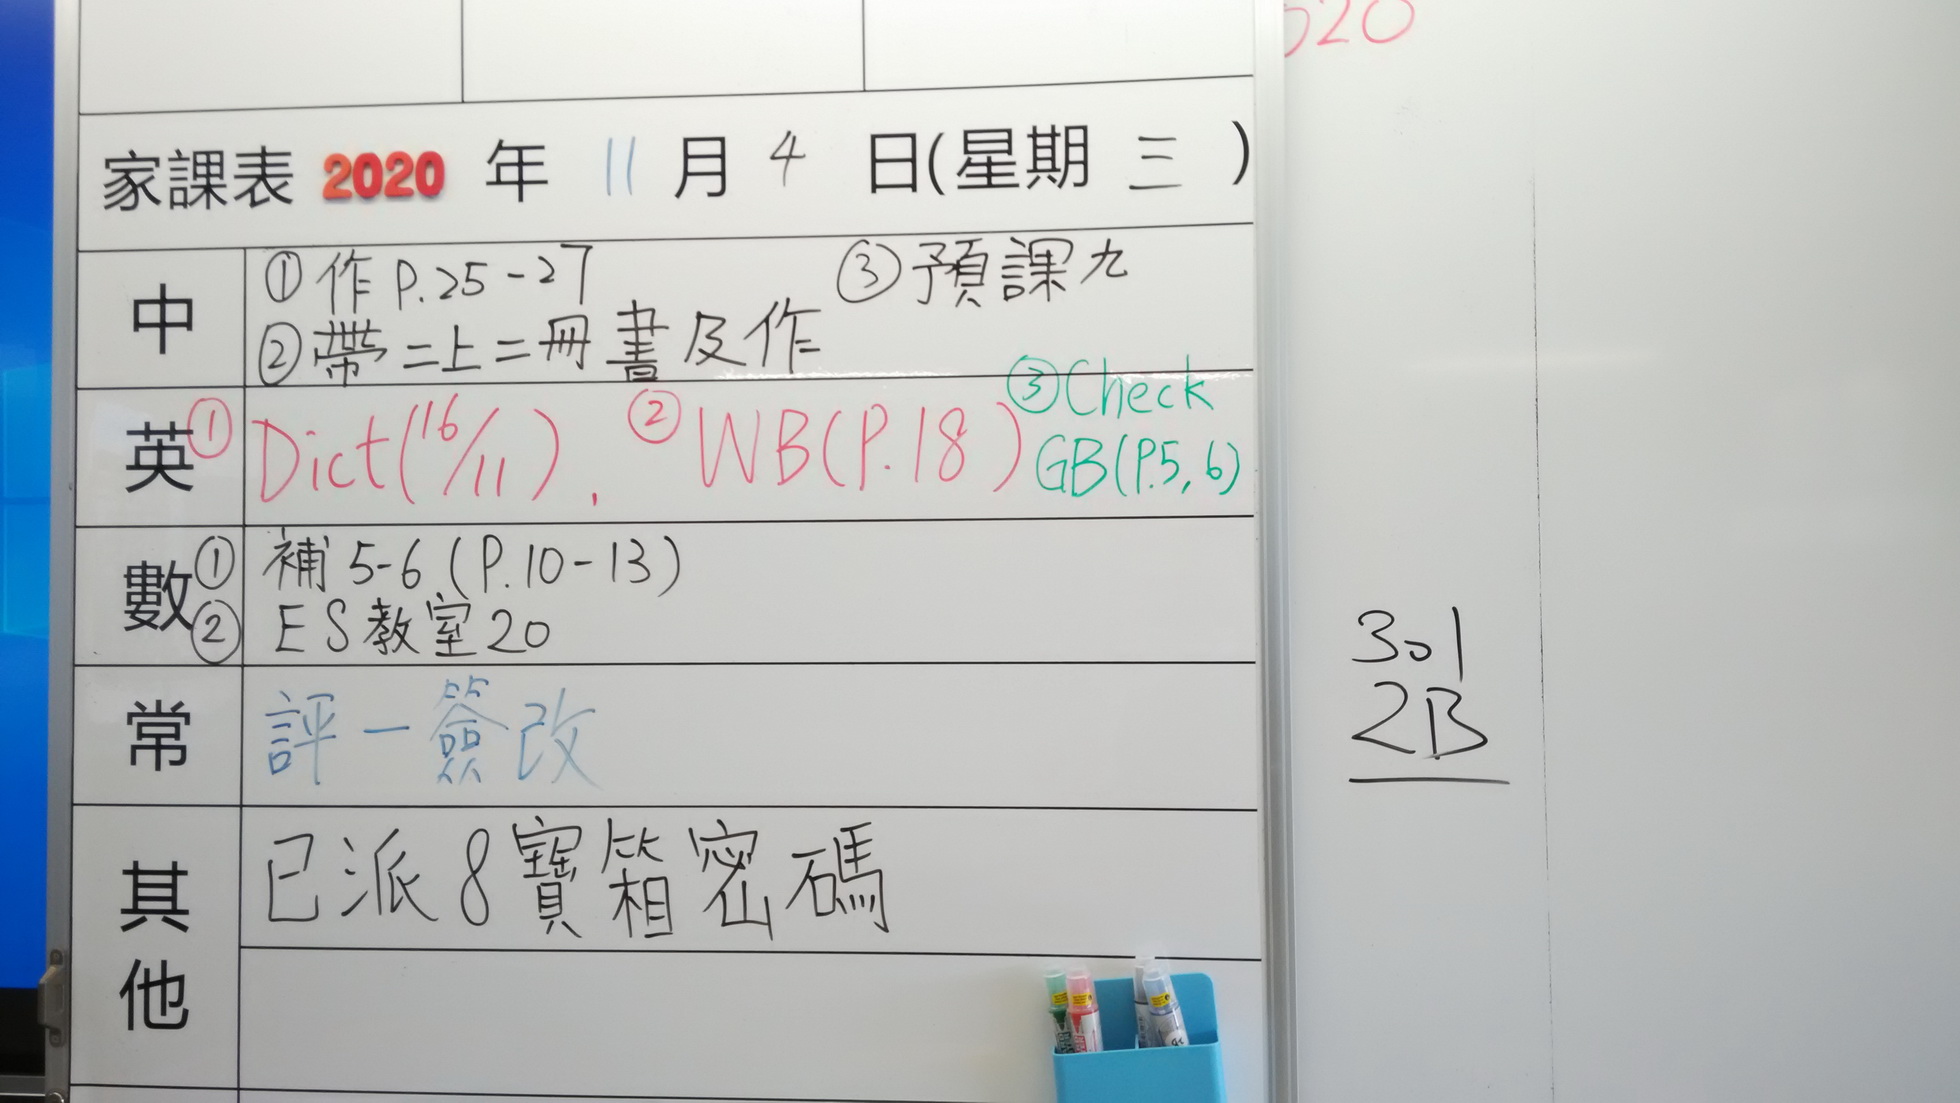 家課表 2020 年 11 月 4 日(星期 三 )
中
① 作 P.25-27 ③ 預課九
② 帶二上二冊書及作
英
① Dict(16/11). ② WB(P.18) ③ Check
GB(P.5,6)
數
① 補 5-6 (P.10-13)
② ES教室20
常
評一簽改
其他
已派8寶箱密碼
20
301
2B